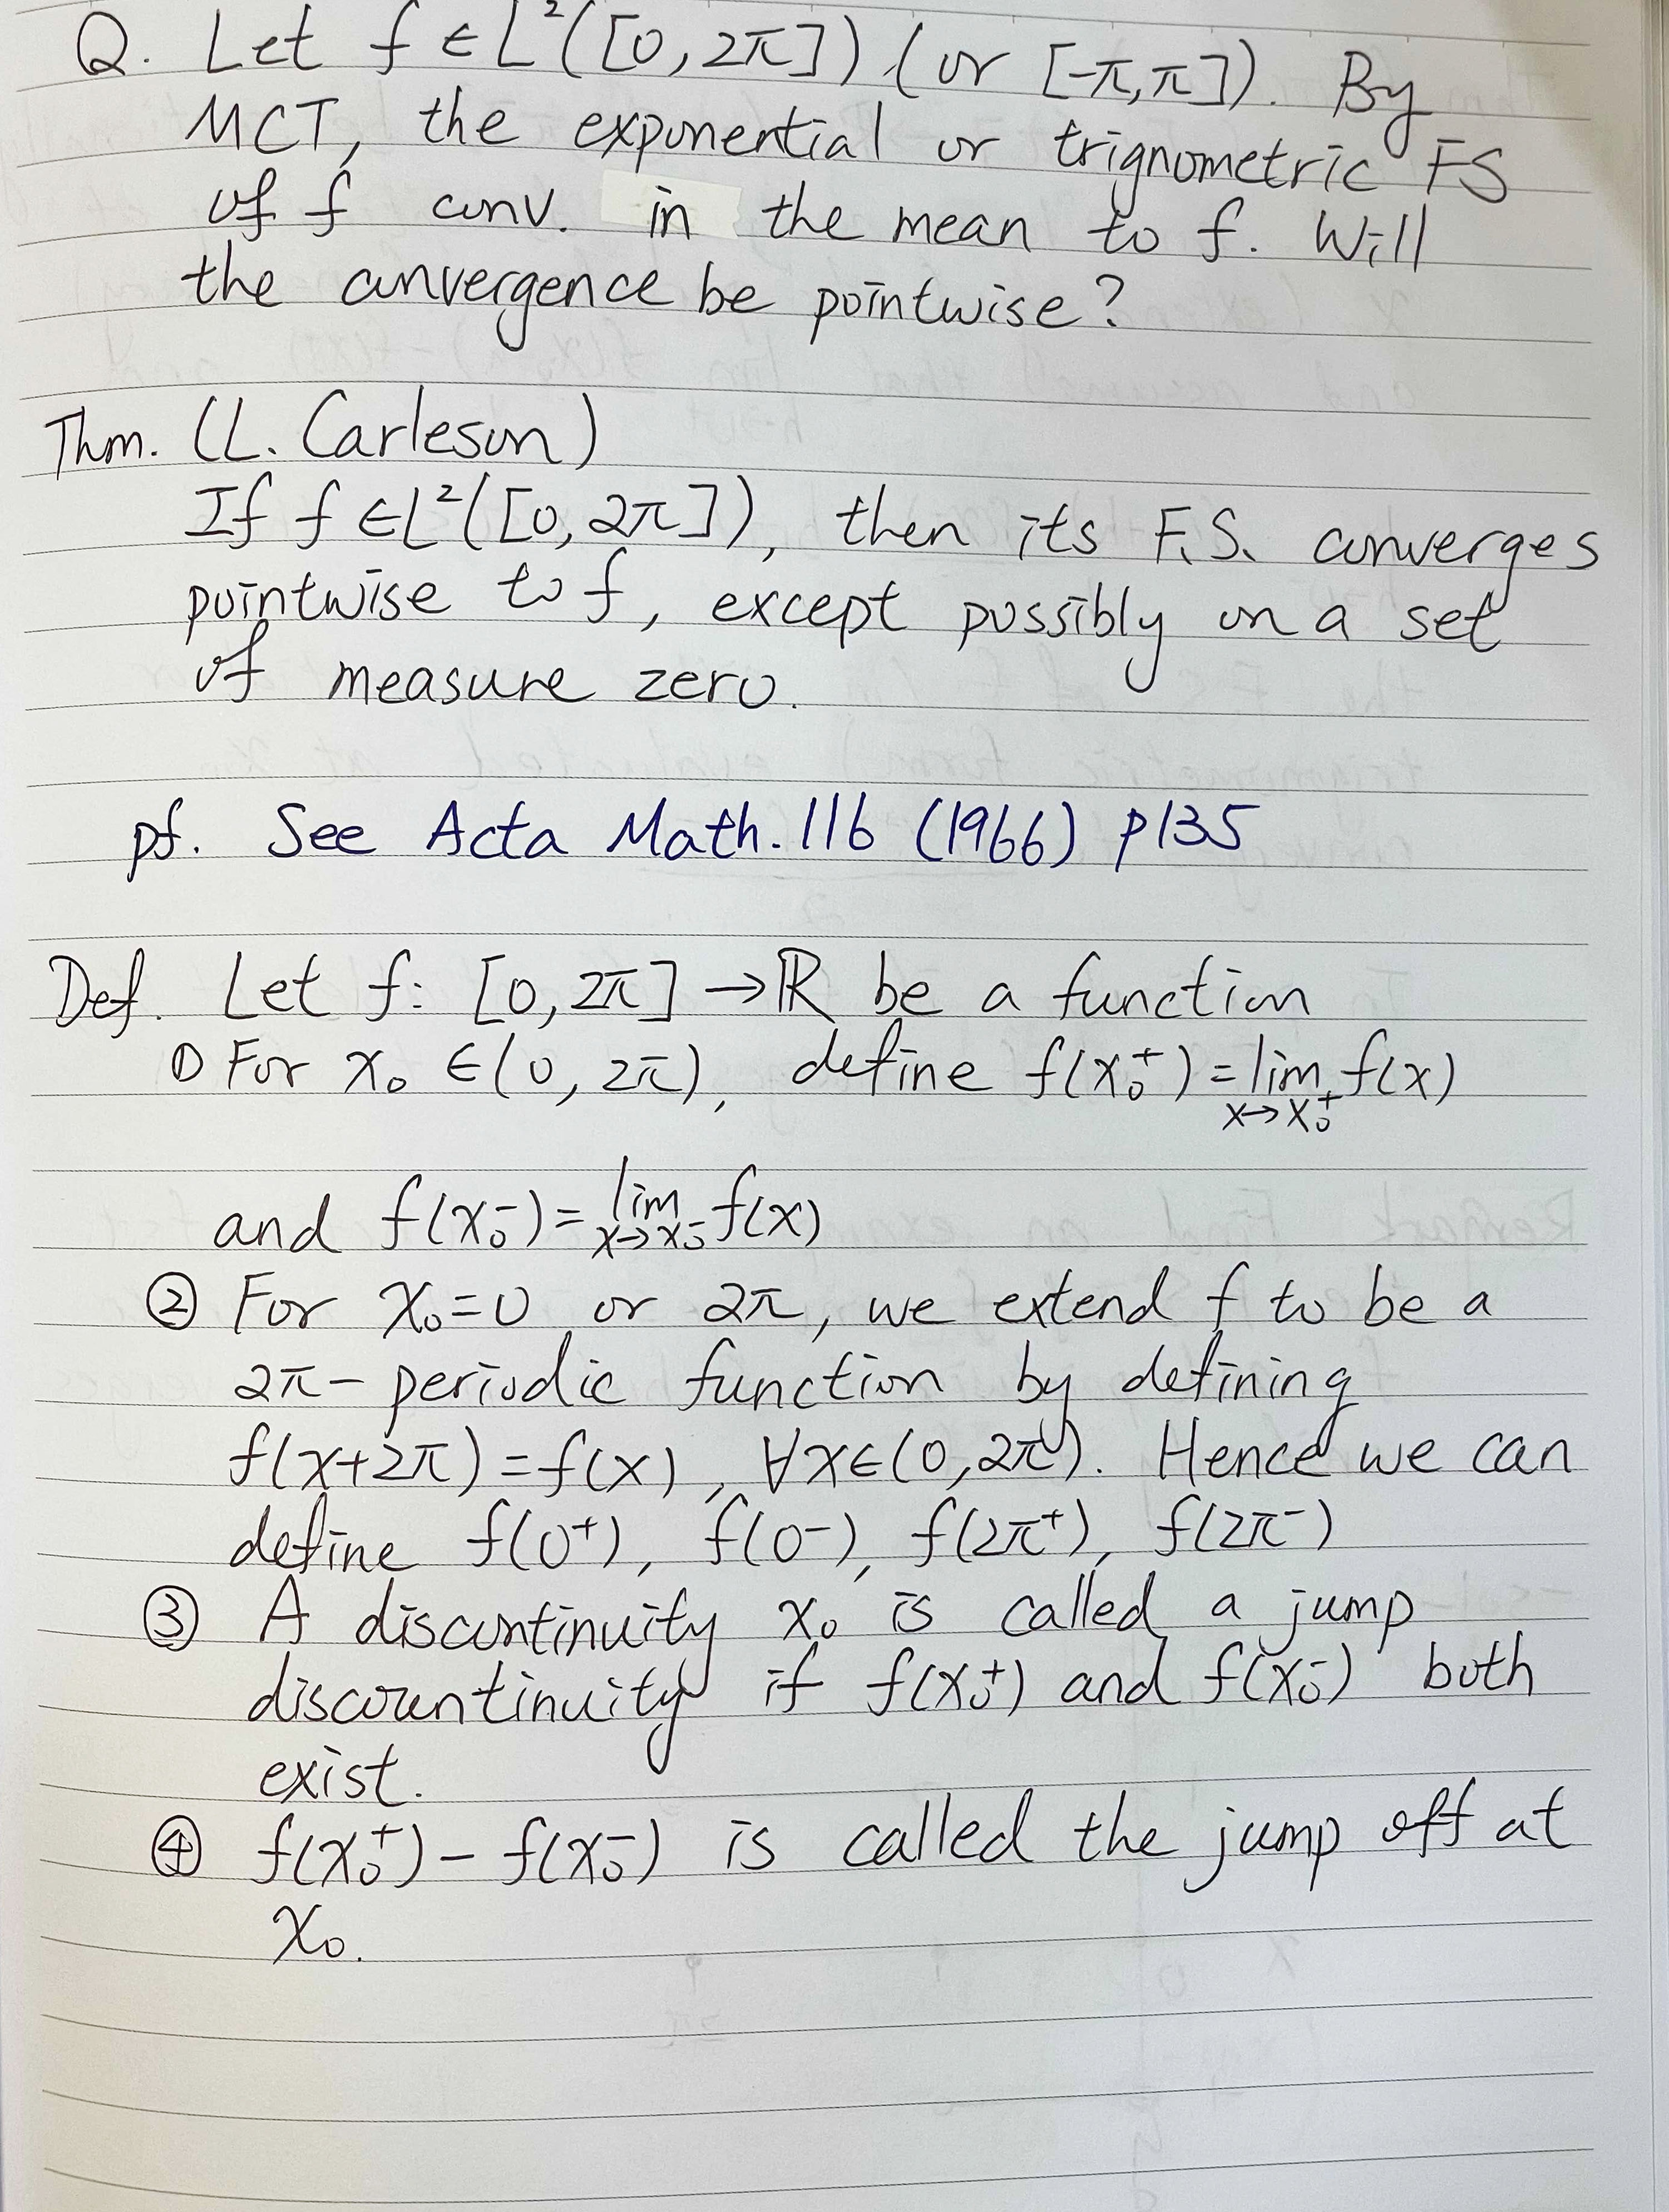 Q. Let f ∈ L²([0, 2π]) (or [-π, π]). By
MCT, the exponential or trignometric FS
of f conv. in the mean to f. Will
the convergence be pointwise?
Thm. (L. Carleson)
If f ∈ L²([0, 2π]), then its F.S. converges
pointwise to f, except possibly on a set
of measure zero.
pf. See Acta Math. 116 (1966) p135
Def. Let f: [0, 2π] → ℝ be a function
① For x₀ ∈ (0, 2π), define f(x₀⁺) = lim_{x→x₀⁺} f(x)
and f(x₀⁻) = lim_{x→x₀⁻} f(x)
② For x₀ = 0 or 2π, we extend f to be a
2π- periodic function by defining
f(x+2π) = f(x), ∀x∈(0, 2π). Hence we can
define f(0⁺), f(0⁻), f(2π⁺), f(2π⁻)
③ A discontinuity x₀ is called a jump
discountinuity if f(x₀⁺) and f(x₀⁻) both
exist.
④ f(x₀⁺) - f(x₀⁻) is called the jump off at
x₀.